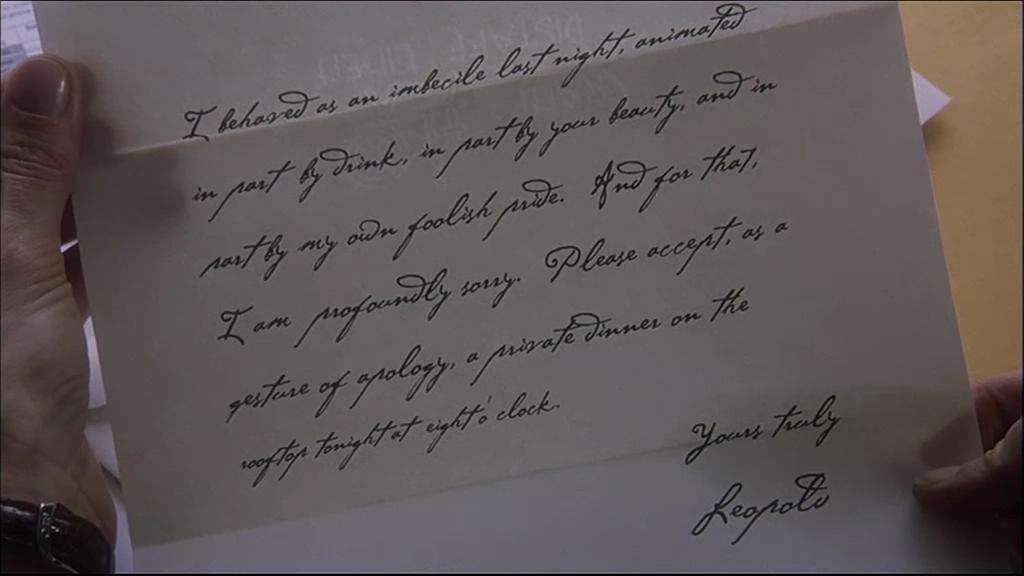 I behaved as an imbecile last night, animated
in part by drink, in part by your beauty, and in
part by my own foolish pride. And for that,
I am profoundly sorry. Please accept, as a
gesture of apology, a private dinner on the
rooftop tonight at eight o' clock.
Yours truly
Leopold